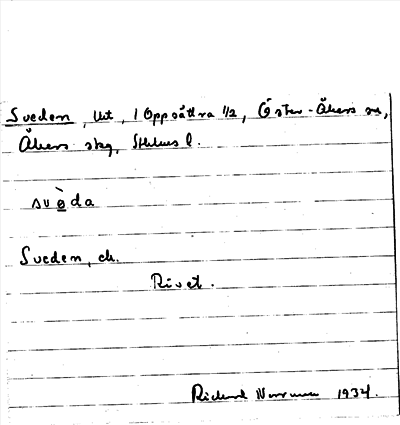 Sveden, lht, 1 Oppsättra 1/2, Öster-Åkers sn,
Åkers skg, Sthlms l.
svèda
Sveden, ek.
Rivet.
Richard Norrman 1934.